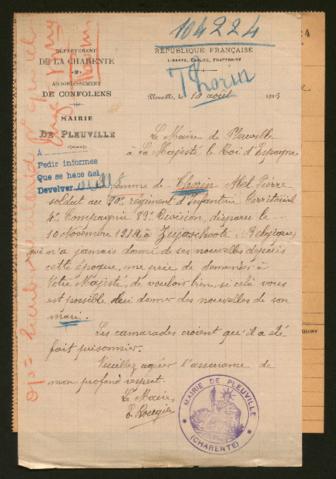 104224
DÉPARTEMENT
DE LA CHARENTE
ARRONDISSEMENT
DE CONFOLENS
MAIRIE
DE PLEUVILLE
RÉPUBLIQUE FRANÇAISE
LIBERTÉ, ÉGALITÉ, FRATERNITÉ
Thorin
Pleuville, le 10 août 1915
Le Maire de Pleuville
à Sa Majesté le Roi d'Espagne
A
Pedir informes
Que se hace del
Devolver
femme de Thorin Abel Pierre
soldat au 70e régiment d'Infanterie Territorial
Compagnie Division, disparu le
10 novembre 1914 à Belgique
n'a jamais donné de ses nouvelles depuis
cette époque, me prie de demander à
Votre Majesté de vouloir bien si cela vous
est possible lui donner des nouvelles de son
mari.
Les camarades croient qu'il a été
fait prisonnier.
Veuillez agréer l'assurance de
mon profond respect.
Le Maire
MAIRIE DE PLEUVILLE
(CHARENTE)